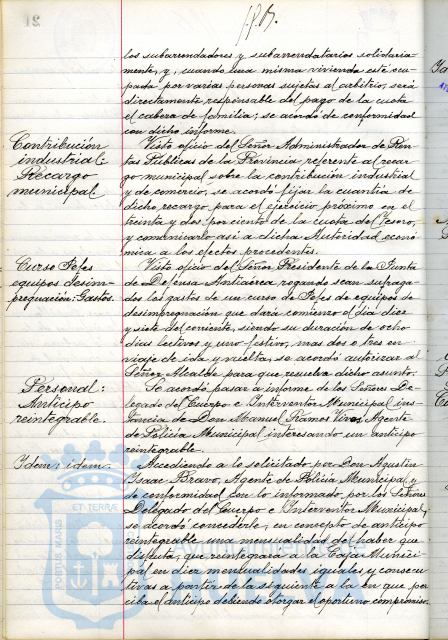 los subarrendadores y subarrendatarios solidaria-
mente, y, cuando una misma vivienda esté ocu-
pada por varias personas sujetas al arbitrio, será
directamente responsable del pago de la cuota
el cabeza de familia; se acordó de conformidad
con dicho informe.
Contribución
industrial:
Recargo
municipal
Visto oficio del Señor Administrador de Ren-
tas Públicas de la Provincia, referente al recar-
go municipal sobre la contribución industrial
y de comercio, se acordó fijar la cuantía de
dicho recargo para el ejercicio próximo en el
treinta y dos por ciento de la cuota del Tesoro,
y comunicarlo así a dicha Autoridad econó-
mica a los efectos procedentes.
Curso Jefes
equipos desim-
pregnación: Gastos.
Visto oficio del Señor Presidente de la Junta
de Defensa Antiaérea, rogando sean sufraga-
dos los gastos de un curso de Jefes de equipos de
desimpregnación que dará comienzo el día diez
y siete del corriente, siendo su duración de ocho
días lectivos y uno festivo, mas dos o tres en
viaje de ida y vuelta, se acordó autorizar al
Señor Alcalde para que resuelva dicho asunto.
Personal:
Anticipo
reintegrable.
Se acordó pasar a informe de los Señores De-
legado del Cuerpo e Interventor Municipal ins-
tancia de Don Manuel Ramos Vivas, Agente
de Policía Municipal interesando un anticipo
reintegrable.
Idem: idem.
Accediendo a lo solicitado por Don Agustín
Isaac Bravo, Agente de Policía Municipal, y
de conformidad con lo informado por los Señores
Delegado del Cuerpo e Interventor Municipal,
se acordó concederle, en concepto de anticipo
reintegrable una mensualidad del haber que
disfruta, que reintegrará a la Caja Munici-
pal en diez mensualidades iguales y consecu-
tivas a partir de la siguiente a la en que per-
ciba el anticipo debiendo otorgar el oportuno compromiso
21
PORTUS MARIS
ET TERRAE